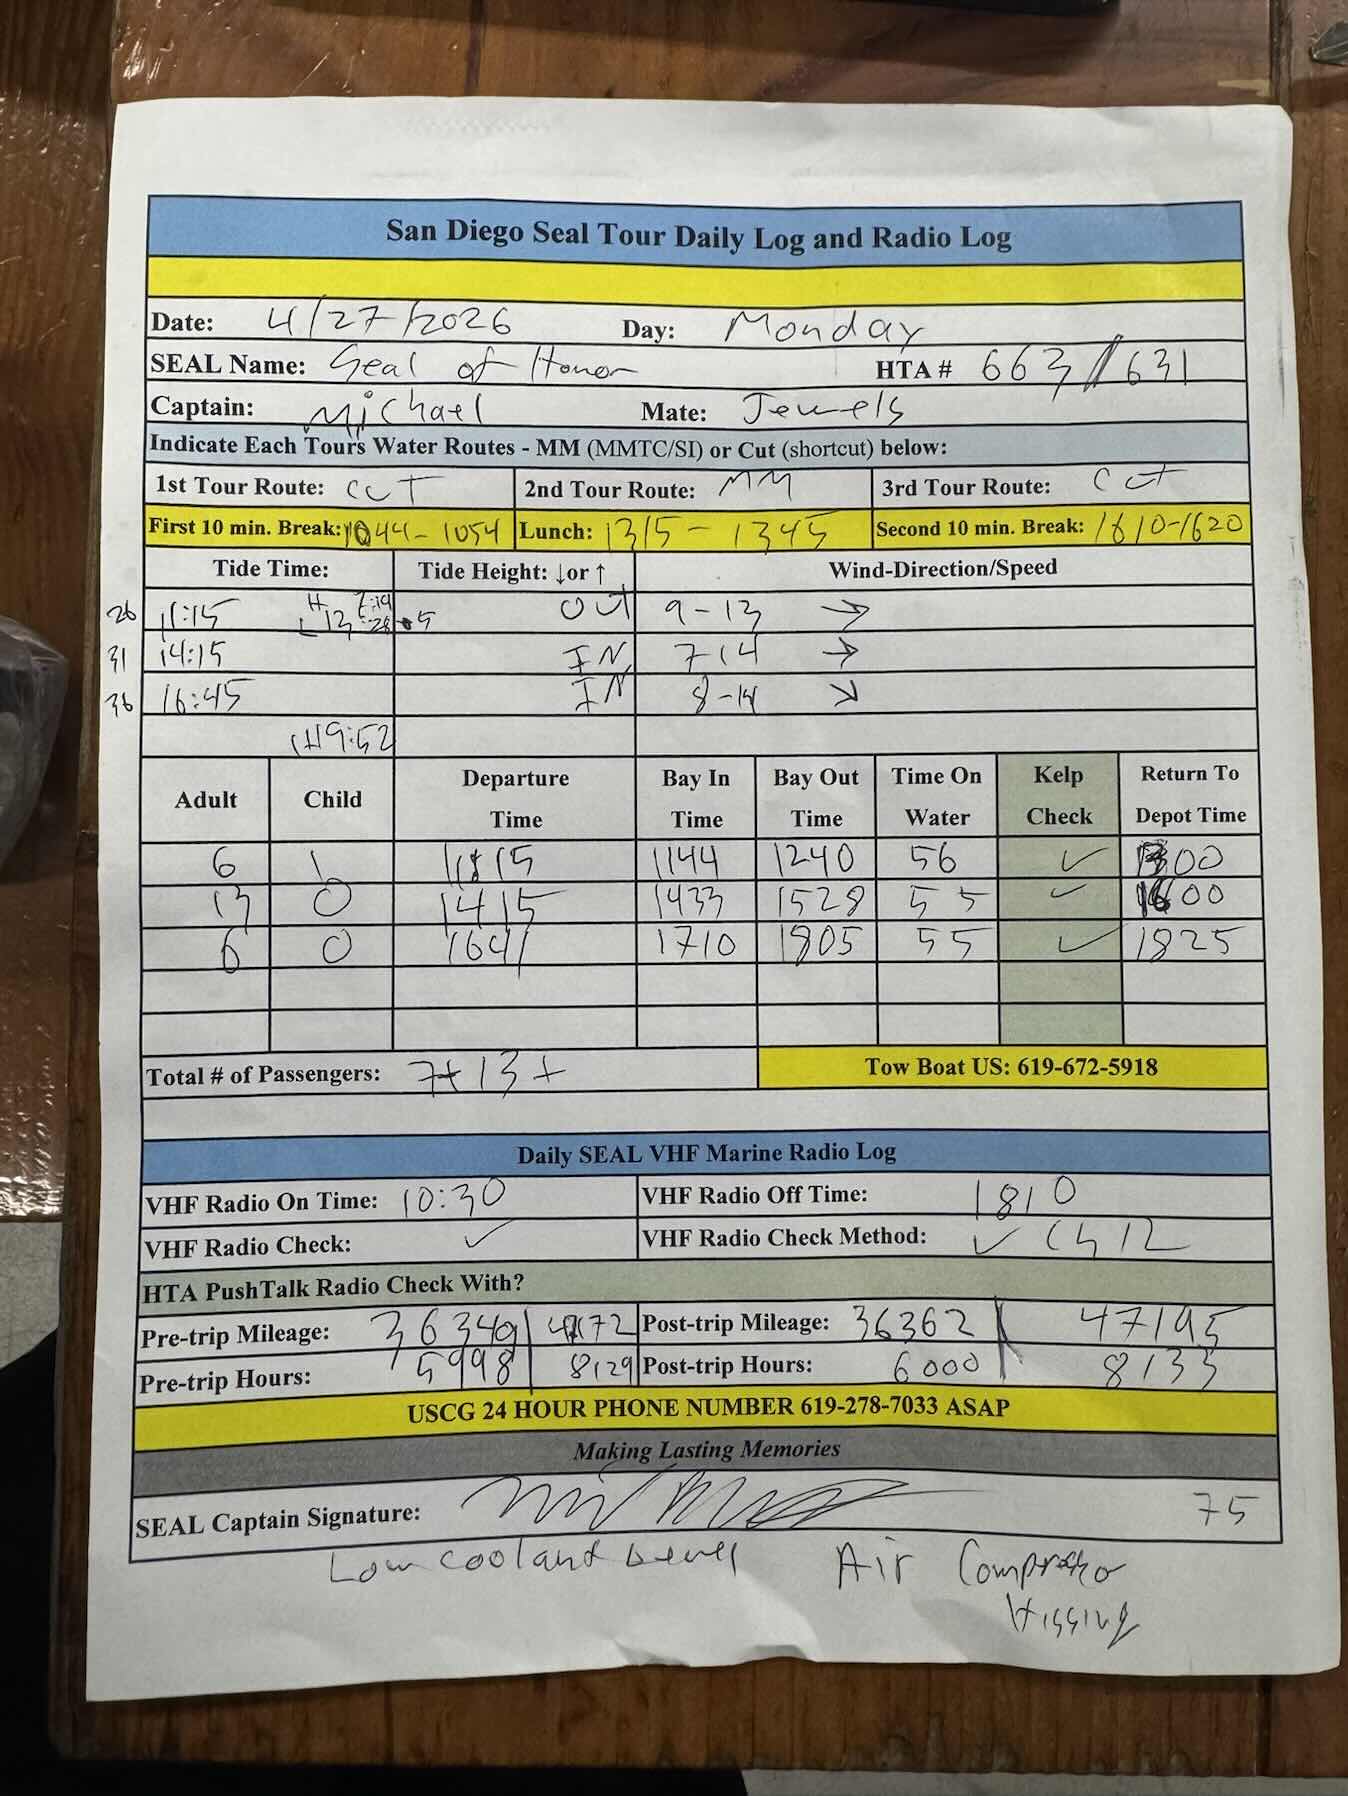 San Diego Seal Tour Daily Log and Radio Log
Date: 4/27/2026 Day: Monday
SEAL Name: Seal of Honor HTA # 663 / 631
Captain: Michael Mate: Jewels
Indicate Each Tours Water Routes - MM (MMTC/SI) or Cut (shortcut) below:
1st Tour Route: CUT 2nd Tour Route: MM 3rd Tour Route: Cut
First 10 min. Break: 1044-1054 Lunch: 1315 - 1345 Second 10 min. Break: 1610-1620
Tide Time: Tide Height: ↓or ↑ Wind-Direction/Speed
26 11:15 H L OUT 9-13 →
31 14:15 IN 7-14 →
36 16:45 IN 8-14 ↘
H 19:52
Adult Child Departure Time Bay In Time Bay Out Time Time On Water Kelp Check Return To Depot Time
6 1 1115 1144 1240 56 ✓ 1300
13 0 1415 1433 1528 55 ✓ 1600
6 0 1641 1710 1805 55 ✓ 1825
Total # of Passengers: 7+13+ Tow Boat US: 619-672-5918
Daily SEAL VHF Marine Radio Log
VHF Radio On Time: 10:30 VHF Radio Off Time: 1810
VHF Radio Check: ✓ VHF Radio Check Method: ✓ Ch 12
HTA PushTalk Radio Check With?
Pre-trip Mileage: 36349 | Post-trip Mileage: 36362 | 47195
Pre-trip Hours: 5998 | 8129 Post-trip Hours: 6000 8133
USCG 24 HOUR PHONE NUMBER 619-278-7033 ASAP
Making Lasting Memories
SEAL Captain Signature: 75
Low coolant level Air Compressor
Hissing